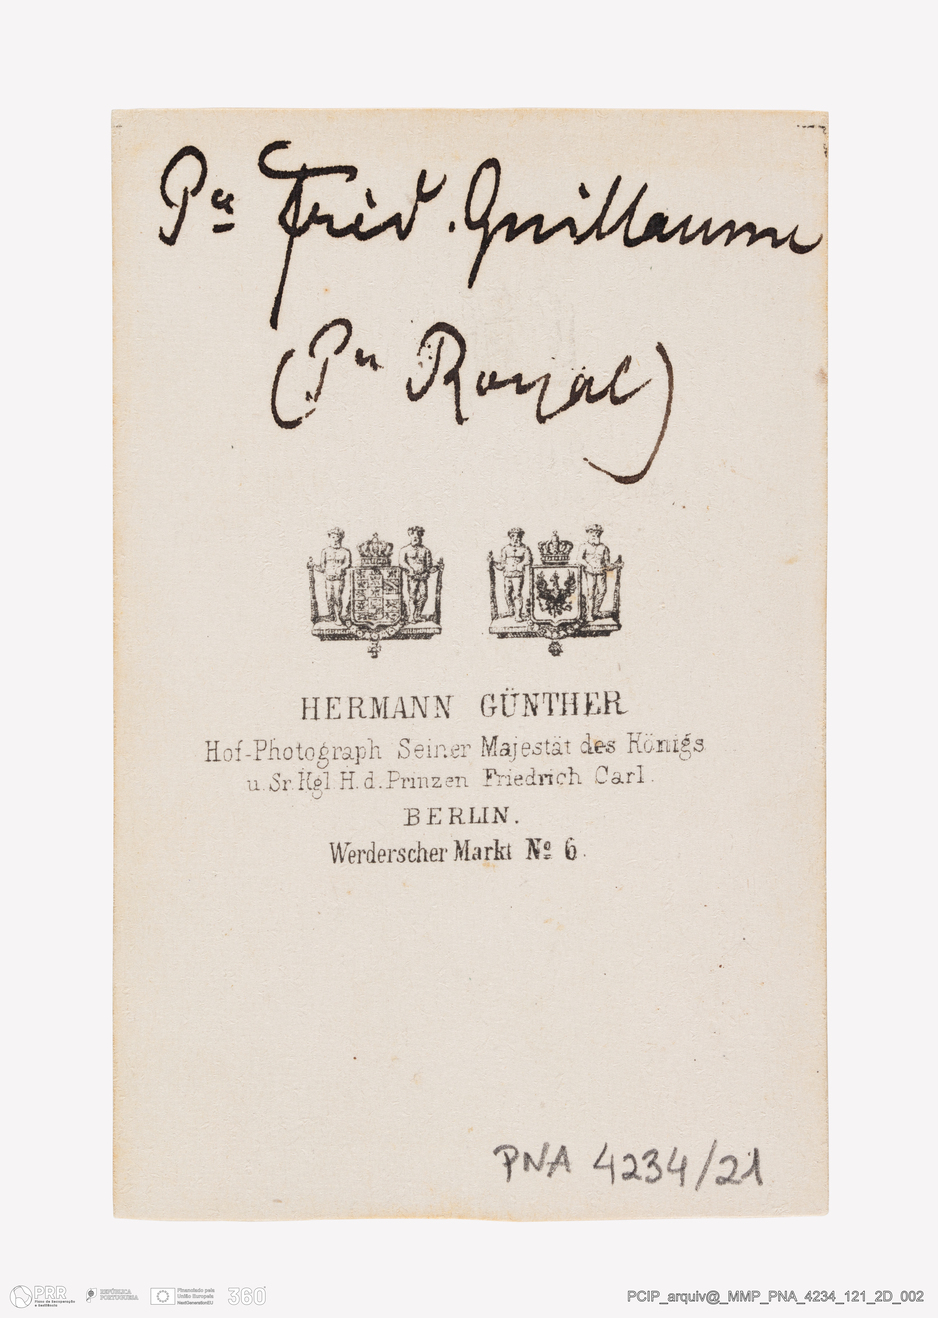 Pce Fried. Guillaume
(Pce Royal)
HERMANN GÜNTHER
Hof-Photograph Seiner Majestät des Königs
u. Sr. Kgl. H. d. Prinzen Friedrich Carl.
BERLIN.
Werderscher Markt No 6.
PNA 4234/21
PRR
Plano de Recuperação
e Resiliência
REPÚBLICA
PORTUGUESA
Financiado pela
União Europeia
NextGenerationEU
360°
PCIP_arquiv@_MMP_PNA_4234_121_2D_002